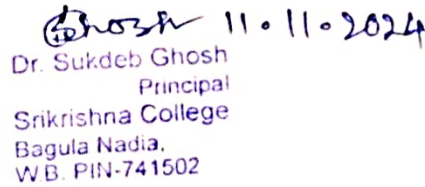 Ghosh 11.11.2024
Dr. Sukdeb Ghosh
Principal
Srikrishna College
Bagula Nadia,
W.B. PIN-741502